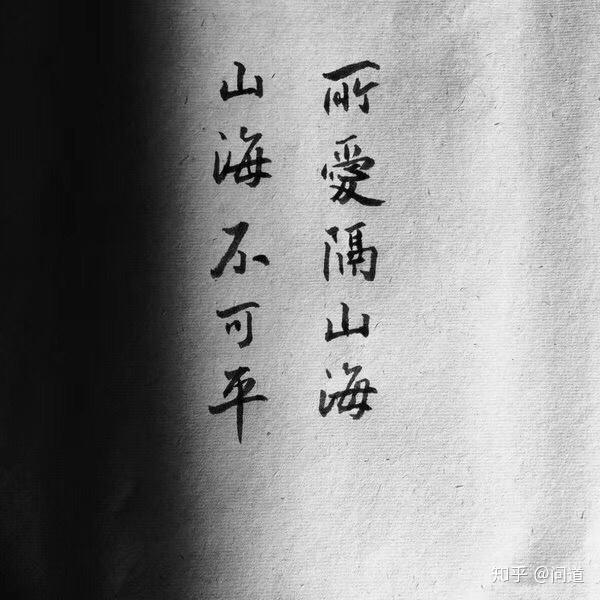 所愛隔山海
山海不可平
知乎 @问道